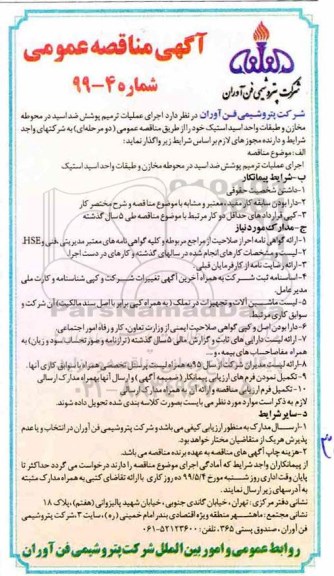 آگهی مناقصه عمومی
شماره ۴-۹۹
شرکت پتروشیمی فن آوران
شرکت پتروشیمی فن آوران در نظر دارد اجرای عملیات ترمیم پوشش ضد اسید در محوطه
مخازن و طبقات واحد اسید استیک خود را از طریق مناقصه عمومی (دو مرحله‌ای) به شرکتهای واجد
شرایط و دارنده مجوزهای لازم بر اساس شرایط زیر واگذار نماید:
الف: موضوع مناقصه
اجرای عملیات ترمیم پوشش ضد اسید در محوطه مخازن و طبقات واحد اسید استیک
ب-شرایط پیمانکار
۱-داشتن شخصیت حقوقی
۲-دارا بودن سابقه کار مفید، معتبر و مشابه با موضوع مناقصه و شرح مختصر کار
۳-کپی قرارداد های حداقل دو کار مرتبط با موضوع مناقصه طی ۵ سال گذشته
ج-مدارک مورد نیاز
۱-ارائه گواهی نامه احراز صلاحیت از مراجع مربوطه و کلیه گواهی نامه های معتبر مدیریتی، فنی و HSE.
۲-لیست و مشخصات کار های انجام شده در سالهای گذشته و کارهای در دست اجرا.
۳-ارائه رضایت نامه از کارفرمایان قبلی.
۴-اساسنامه ثبت شرکت به همراه آخرین آگهی تغییرات شرکت و کپی شناسنامه و کارت ملی
مدیر عامل.
۵-لیست ماشین آلات و تجهیزات در تملک (به همراه کپی برابر با اصل سند مالکیت) آن شرکت و
سوابق کاری مرتبط.
۶-دارا بودن اصل و کپی گواهی صلاحیت ایمنی از وزارت تعاون، کار و رفاه امور اجتماعی.
۷-ارائه لیست دارایی های ثابت و گزارش مالی ۵ سال گذشته (ترازنامه و صورتحساب سود و زیان) به
همراه مفاصاحساب های بیمه، و...
۸-ارائه لیست مدیران شرکت از سال ۹۵ به همراه لیست پرسنل تخصصی همراه با سوابق کاری آنها.
۹-تکمیل نمودن فرم های ارزیابی پیمانکار (ضمیمه آگهی) و ارسال آنها بهمراه مدارک ارسالی
۱۰-تکمیل فرم ارزیابی مناقصه و ارائه آن به همراه مدارک ارسالی
لازم به ذکر است موارد مورد نظر می بایست بصورت کلاسه بندی شده تحویل داده شوند.
د-سایر شرایط
۱-ارسال مدارک به منظور ارزیابی کیفی می باشد و شرکت پتروشیمی فن آوران در انتخاب و یا عدم
پذیرش هریک از متقاضیان مختار خواهد بود.
۲-هزینه چاپ آگهی های مناقصه به عهده برنده مناقصه می باشد.
از پیمانکاران واجد شرایط که آمادگی اجرای موضوع مناقصه را دارند درخواست می گردد حداکثر تا
پایان وقت اداری روز شنبه مورخ ۹۹/۵/۴ ده روز کاری با ارائه تقاضای کتبی به همراه مدارک مثبته
به آدرسهای زیر ارسال نمایند.
نشانی دفتر مرکزی: تهران، خیابان گاندی جنوبی، خیابان شهید پالیزوانی (هفتم)، پلاک ۱۸
نشانی مجتمع: ماهشهر، منطقه ویژه اقتصادی بندر امام خمینی (ره)، سایت ۳، شرکت پتروشیمی
فن آوران، صندوق پستی ۳۶۵، تلفن: ۵۲۱۲۳۶۰۰-۰۶۱
روابط عمومی و امور بین الملل شرکت پتروشیمی فن آوران